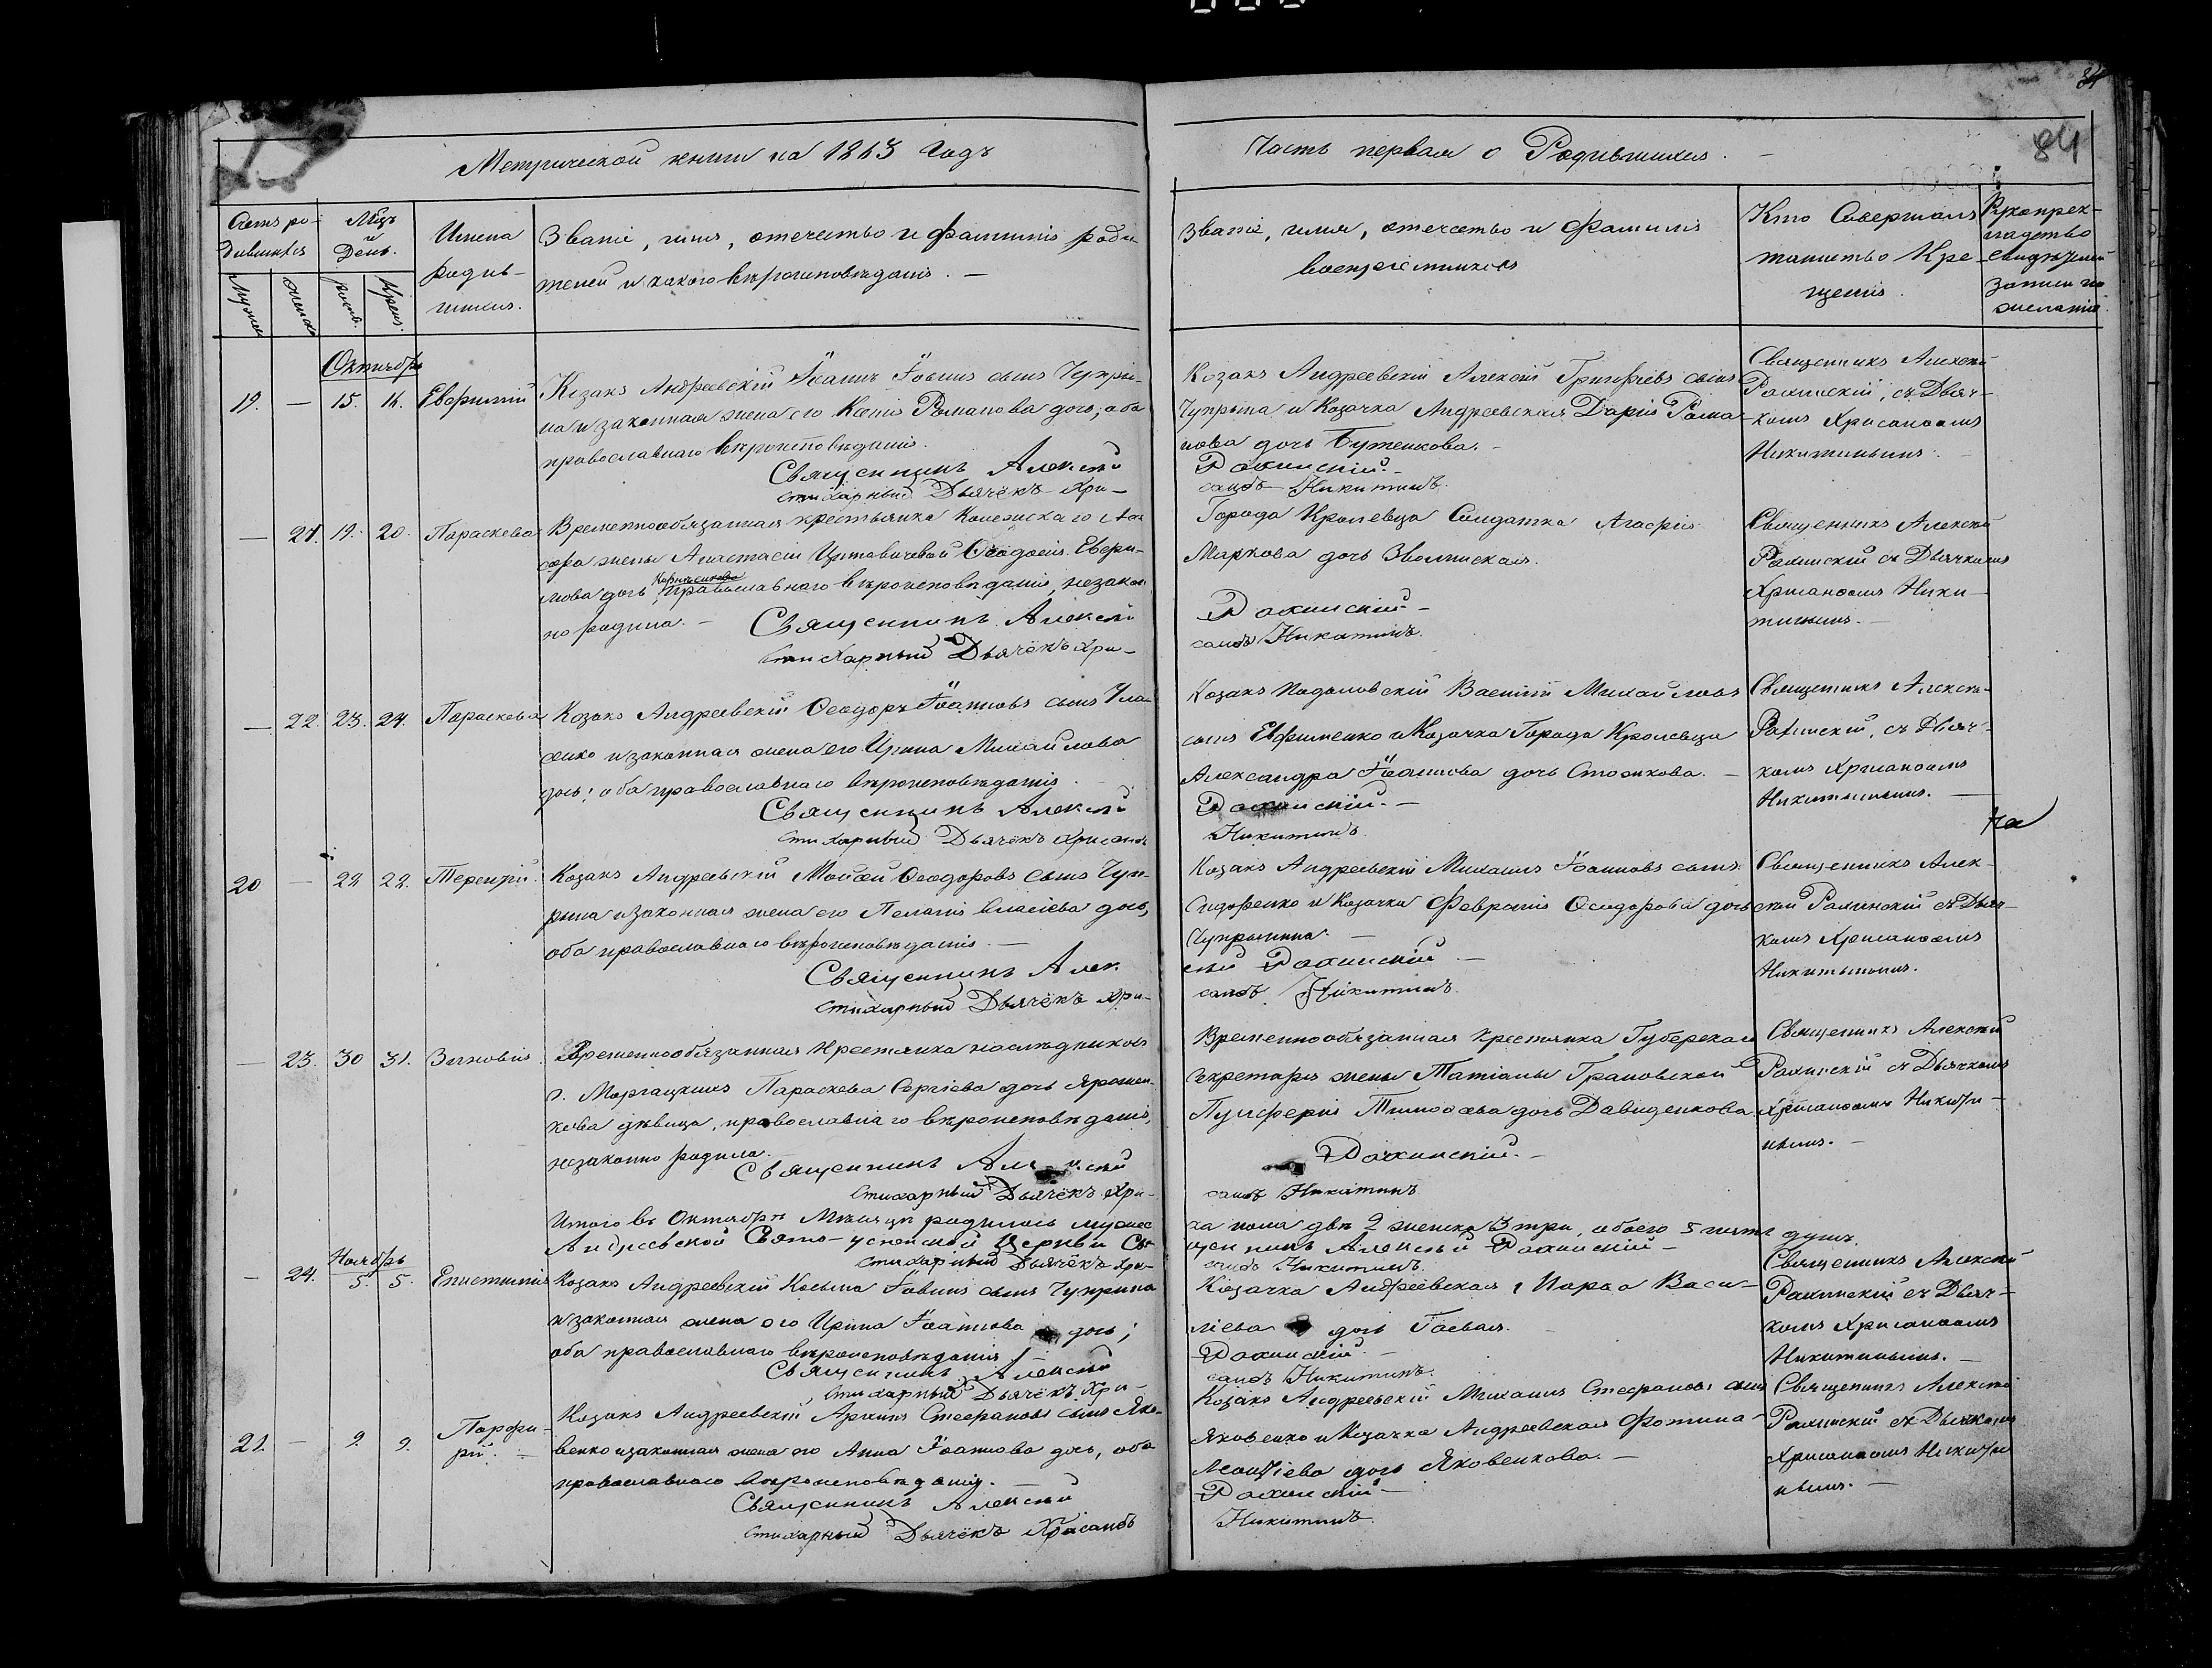 84
Метрической книги на 1863 Годъ
Часть первая о Родившихся.
84
Счетъ ро-
дившихся
Мѣцъ
и
День.
Имена
родив-
шихся.
Званіе, имя, отечество и фамилія роди-
телей и какого вѣроисповѣданія. —
Званіе, имя, отечество и фамилія
воспріемниковъ
Кто Совершалъ
таинство Кре-
щенія.
записи по
желанію.
Октябрь
19. — 15. 16. Евфимій
Козакъ Андреевскій Іоаннъ Іовинъ сынъ Чупры-
на и законная жена его Ксенія Романова дочь; оба
православнаго вѣроисповѣданія.
Священникъ Алексей
стихарный Дьячёкъ Хри-
Козакъ Андреевскій Алексій Григоріевъ сынъ
Чупрына и Козачка Андреевская Дарія Рома-
нова дочь Бутенкова. -
Рахинскій. -
санѳъ Никитинъ.
Священникъ Алексій
Рахинскій, съ Дьяч-
комъ Хрисанѳомъ
Никитинымъ. -
— 21. 19. 20. Параскева
Временнообязанная крестьянка
жены Анастасіи Ѳеодосія Евфи-
мова дочь православнаго вѣроисповѣданія, незакон-
но родила. — Священникъ Алексей
стихарный Дьячёкъ Хри-
Города Кролевца Солдатка Агафія
Маркова дочь
Рахинскій -
санѳъ Никитинъ.
Священникъ Алексій
Рахинскій съ Дьячкомъ
Хрисанѳомъ Ники-
тинымъ. -
— 22. 23. 24. Параскева
Козакъ Андреевскій Ѳеодоръ Іоанновъ сынъ
и законная жена его Ирина Михайлова
дочь; оба православнаго вѣроисповѣданія.
Священникъ Алексей
стихарный Дьячёкъ Хрисанѳъ
Козакъ Подоловскій Василій Михайловъ
сынъ Евфименко и Козачка Города Кролевца
Александра Іоаннова дочь -
Рахинскій. -
Никитинъ.
Священникъ Алексій
Рахинскій, съ Дьяч-
комъ Хрисанѳомъ
Никитинымъ. —
20 — 22 22. Терентій.
Козакъ Андреевскій Моисей Ѳеодоровъ сынъ Чуп-
рына и законная жена его Пелагія Власіева дочь,
оба православнаго вѣроисповѣданія. —
Священникъ Алек.
стихарный Дьячёкъ Хри-
Козакъ Андреевскій Михаилъ Іоанновъ сынъ
Сидоренко и Козачка Февронія Ѳеодорова дочь
Чупрынина. —
сей Рахинскій. —
санѳъ. Никитинъ.
Священникъ Алек-
сій Рахинскій съ Дьяч-
комъ Хрисанѳомъ
Никитинымъ.
— 23. 30 31. Зиновія.
Временнообязанная Крестьянка наслѣдниковъ
г. Параскева Сергіева дочь Ярошен-
кова дѣвица, православнаго вѣроисповѣданія,
незаконно родила. -
Священникъ Алексей
стихарный Дьячёкъ Хри-
Временнообязанная крестьянка Губернскаго
Секретаря жены Татіаны Грановской
Пульхерія Тимоѳеева дочь Давиденкова.
Рахинскій. -
санѳъ Никитинъ
Священникъ Алексій
Рахинскій съ Дьячкомъ
Хрисанѳомъ Никити-
нымъ. —
Итого въ Октябрѣ Мѣсяцѣ родилось мужес-
ка пола два 2 женска 3 три, обоего 5 пять душъ.
Андреевской Свято-успенской Церкви Свя-
щенникъ Алексей Рахинскій -
стихарный Дьячёкъ Хри-
санѳъ Никитинъ.
Ноябрь
- 24. 5. 5. Епистимія
Козакъ Андреевскій Косьма Іовинъ сынъ Чупрына
и законная жена его Ирина Іоаннова дочь;
оба православнаго вѣроисповѣданія. -
Священникъ Алексей
стихарный Дьячёкъ Хри-
Козачка Андреевская Васи-
ліева дочь Гаевая. -
Рахинскій. -
санѳъ Никитинъ.
Священникъ Алексій
Рахинскій съ Дьяч-
комъ Хрисанѳомъ
Никитинымъ. —
21. — 9. 9. Порфи-
рій. -
Козакъ Андреевскій Архипъ Стефановъ сынъ Яко-
венко и законная жена его Анна Іоаннова дочь, оба
православнаго вѣроисповѣданія. -
Священникъ Алексей
стихарный Дьячёкъ Хрисанѳъ
Козакъ Андреевскій Михаилъ Стефановъ сынъ
Яковенко и Козачка Андреевская Фотина
дочь Яковенкова. —
Рахинскій -
Никитинъ.
Священникъ Алексій
Рахинскій съ Дьячкомъ
Хрисанѳомъ Никити-
нымъ. —